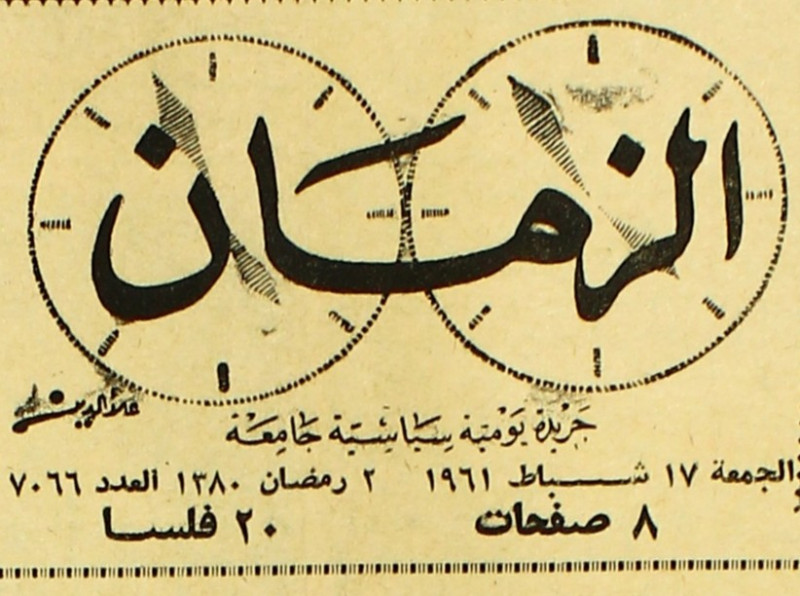 الزمان
علاء الدين
جريدة يومية سياسية جامعة
الجمعة ١٧ شباط ١٩٦١ ٢ رمضان ١٣٨٠ العدد ٧٠٦٦
٨ صفحات ٢٠ فلسا